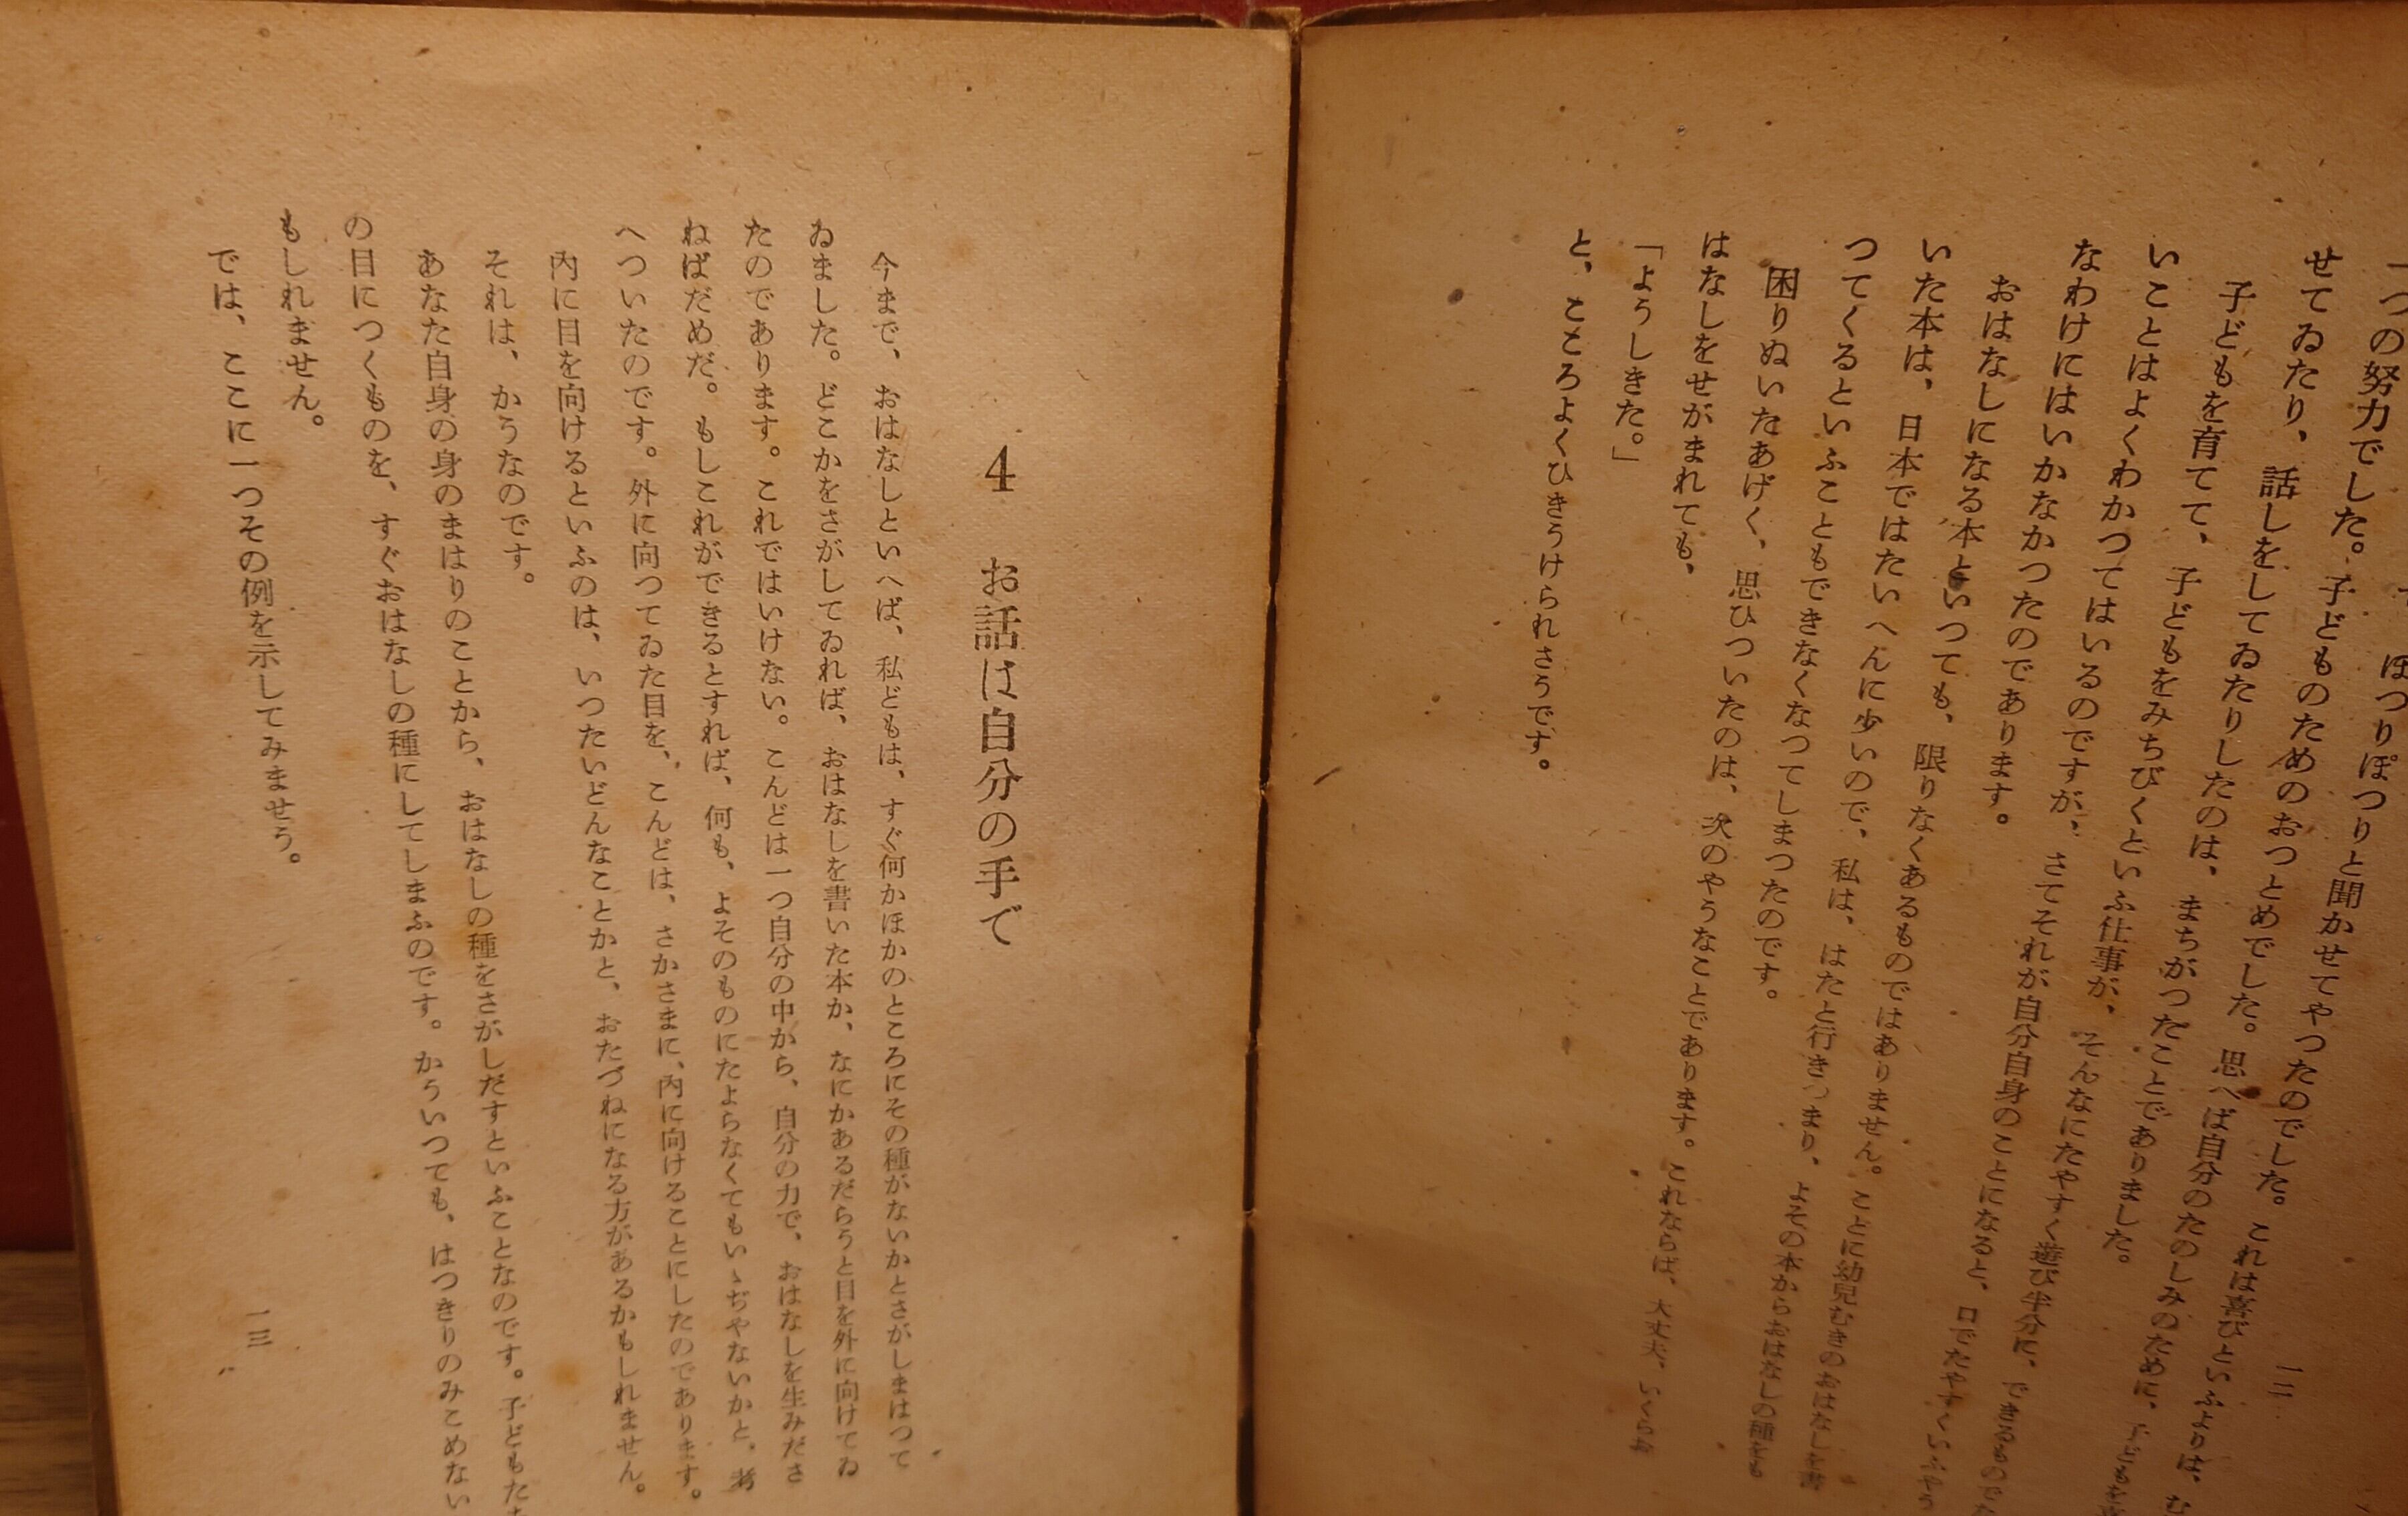 つの努力でした。子どものためのおつとめでした。これは喜びといふよりは、む
せてゐたり、話しをしてゐたりしたのは、まちがつたことでありました。
子どもを育てて、子どもをみちびくといふ仕事が、そんなにたやすく遊び半分に、できるものでた
いことはよくわかつてはいるのですが、さてそれが自分自身のことになると、口でたやすくいふやう
なわけにはいかなかつたのであります。
おはなしになる本といつても、限りなくあるものではありません。ことに幼児むきのおはなしを書
いた本は、日本ではたいへんに少いので、私は、はたと行きつまり、よその本からおはなしの種をも
つてくるといふこともできなくなつてしまつたのです。
困りぬいたあげく、思ひついたのは、次のやうなことであります。これならば、大丈夫、いくらお
はなしをせがまれても、
「ようしきた。」
と、こころよくひきうけられさうです。
一二
4 お話は自分の手で
今まで、おはなしといへば、私どもは、すぐ何かほかのところにその種がないかとさがしまはつて
ゐました。どこかをさがしてゐれば、おはなしを書いた本か、なにかあるだらうと目を外に向けてゐ
たのであります。これではいけない。こんどは一つ自分の中から、自分の力で、おはなしを生みださ
ねばだめだ。もしこれができるとすれば、何も、よそのものにたよらなくてもいゝぢやないかと、考
へついたのです。外に向つてゐた目を、こんどは、さかさまに、内に向けることにしたのであります。
内に目を向けるといふのは、いつたいどんなことかと、おたづねになる方があるかもしれません。
それは、かうなのです。
あなた自身の身のまはりのことから、おはなしの種をさがしだすといふことなのです。子どもた
の目につくものを、すぐおはなしの種にしてしまふのです。かういつても、はつきりのみこめない
もしれません。
では、ここに一つその例を示してみませう。
一三